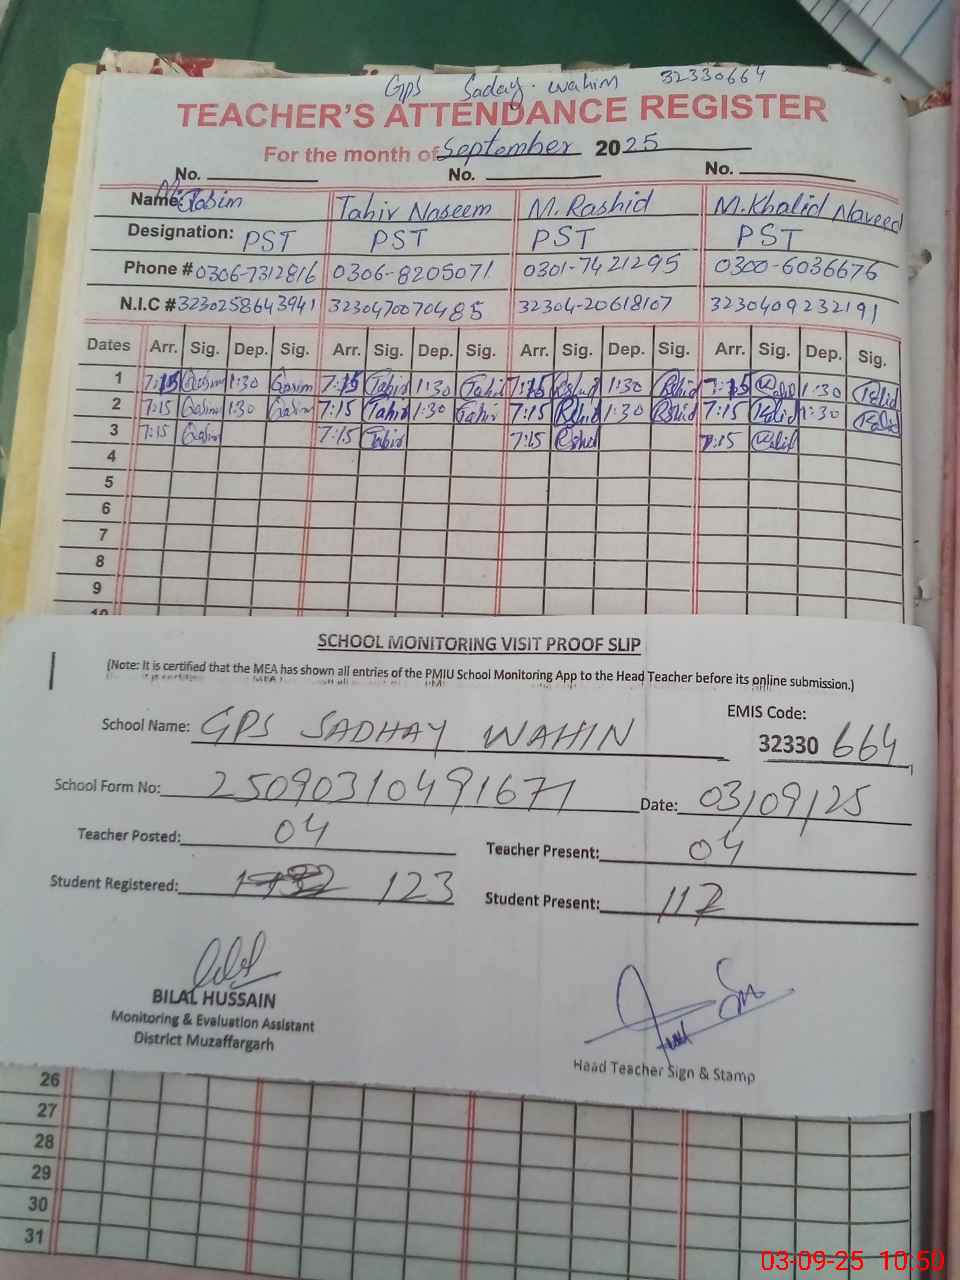 GPS Saday. wahim 32330664
TEACHER'S ATTENDANCE REGISTER
For the month of September 2025
No. No. No.
Name: Qasim Tahir Naseem M. Rashid M. Khalid Naveed
Designation: PST PST PST PST
Phone # 0306-7312816 0306-8205071 0301-7421295 0300-6036676
N.I.C # 3230258643941 3230470070485 32304-20618107 3230409232191
Dates Arr. Sig. Dep. Sig. Arr. Sig. Dep. Sig. Arr. Sig. Dep. Sig. Arr. Sig. Dep. Sig.
1 7:15 Qasim 1:30 Qasim 7:15 Tahir 1:30 Tahir 7:15 Rshid 1:30 Rshid 7:15 Kalid 1:30 Kalid
2 7:15 Qasim 1:30 Qasim 7:15 Tahir 1:30 Tahir 7:15 Rshid 1:30 Rshid 7:15 Kalid 1:30 Kalid
3 7:15 Qasim 7:15 Tahir 7:15 Rshid 7:15 Kalid
4
5
6
7
8
9
10
SCHOOL MONITORING VISIT PROOF SLIP
(Note: It is certified that the MEA has shown all entries of the PMIU School Monitoring App to the Head Teacher before its online submission.)
School Name: GPS SADHAY WAHIN EMIS Code:
32330 664
School Form No: 25090310491671 Date: 03/09/25
Teacher Posted: 04 Teacher Present: 04
Student Registered: 123 Student Present: 117
BILAL HUSSAIN
Monitoring & Evaluation Assistant
District Muzaffargarh
Haad Teacher Sign & Stamp
26
27
28
29
30
31
03-09-25 10:50